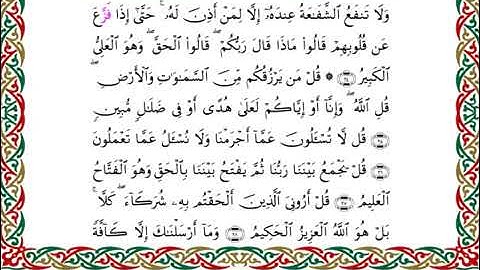 وَلَا تَنفَعُ ٱلشَّفَٰعَةُ عِندَهُۥٓ إِلَّا لِمَنْ أَذِنَ لَهُۥۚ حَتَّىٰٓ إِذَا فَزَّعَ
عَن قُلُوبِهِمْ قَالُوا۟ مَاذَا قَالَ رَبُّكُمْۖ قَالُوا۟ ٱلْحَقَّۖ وَهُوَ ٱلْعَلِىُّ
ٱلْكَبِيرُ ۞ قُلْ مَن يَرْزُقُكُم مِّنَ ٱلسَّمَٰوَٰتِ وَٱلْأَرْضِۖ
قُلِ ٱللَّهُۖ وَإِنَّآ أَوْ إِيَّاكُمْ لَعَلَىٰ هُدًى أَوْ فِى ضَلَٰلٍ مُّبِينٍ
قُل لَّا تُسْـَٔلُونَ عَمَّآ أَجْرَمْنَا وَلَا نُسْـَٔلُ عَمَّا تَعْمَلُونَ
قُلْ يَجْمَعُ بَيْنَنَا رَبُّنَا ثُمَّ يَفْتَحُ بَيْنَنَا بِٱلْحَقِّ وَهُوَ ٱلْفَتَّاحُ
ٱلْعَلِيمُ قُلْ أَرُونِىَ ٱلَّذِينَ أَلْحَقْتُم بِهِۦ شُرَكَآءَۖ كَلَّاۚ
بَلْ هُوَ ٱللَّهُ ٱلْعَزِيزُ ٱلْحَكِيمُ وَمَآ أَرْسَلْنَٰكَ إِلَّا كَآفَّةً